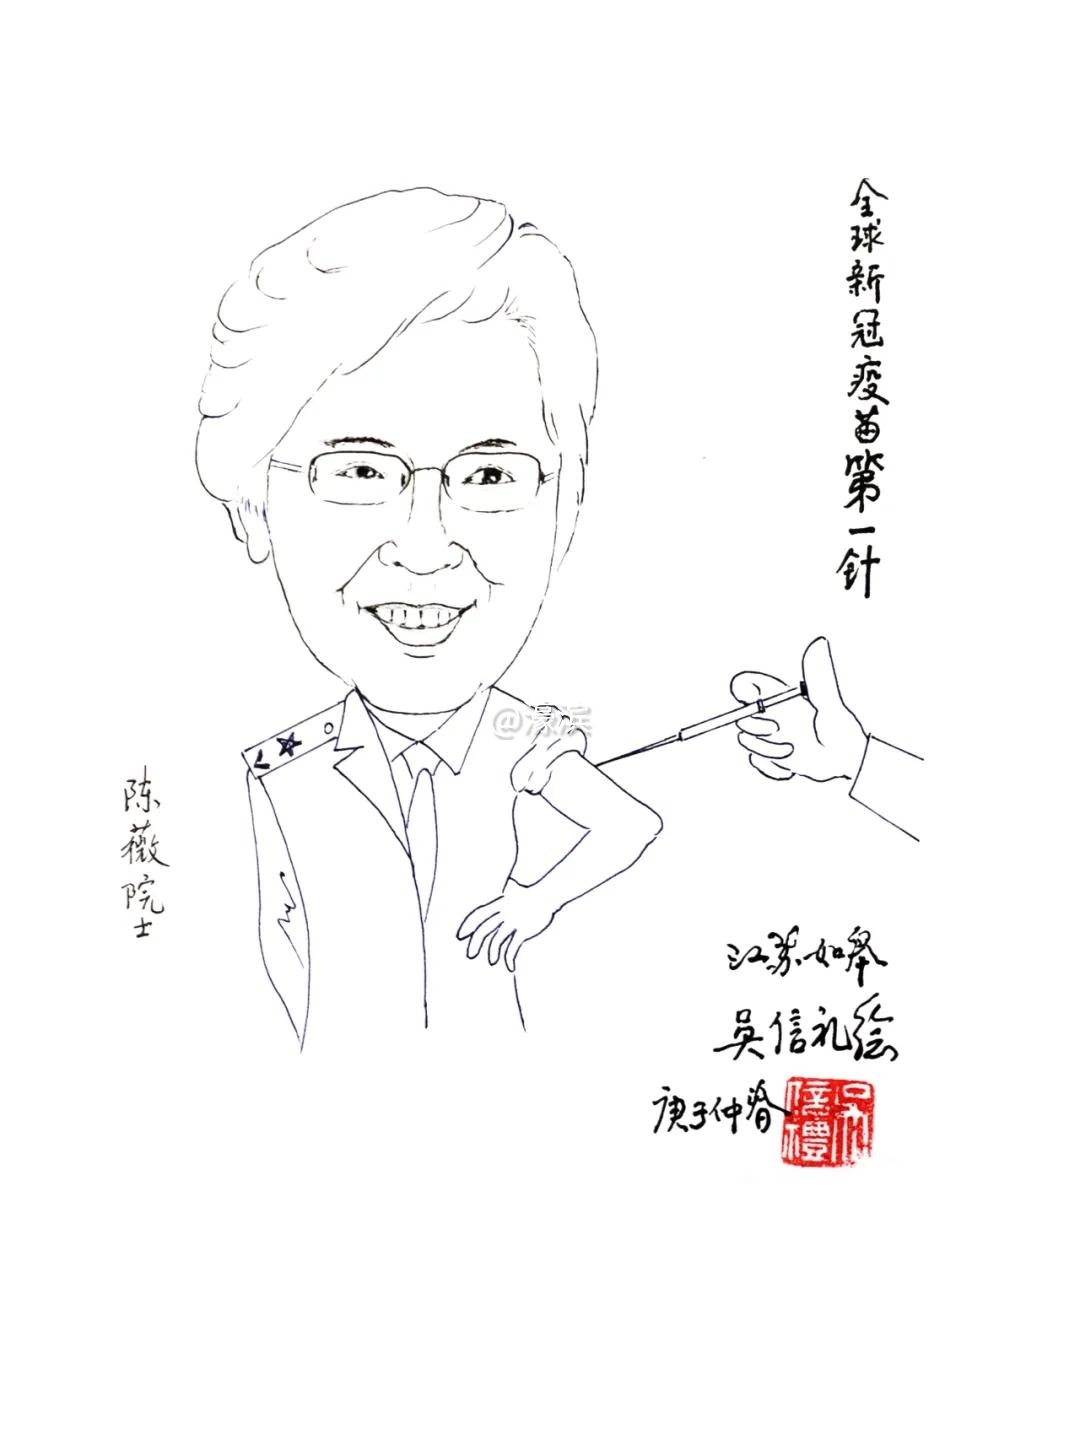 全球新冠疫苗第一针
陈薇院士
@濠浜
江苏如皋
吴信礼绘
庚子仲春
吴信禮